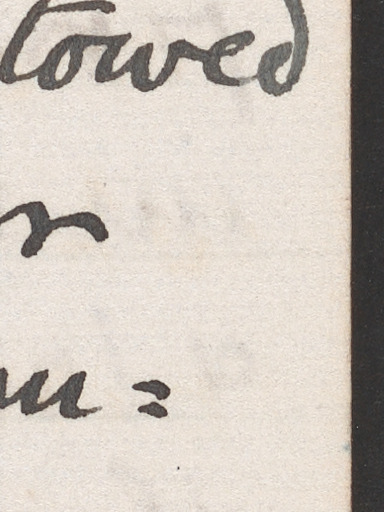 towed
r
m=